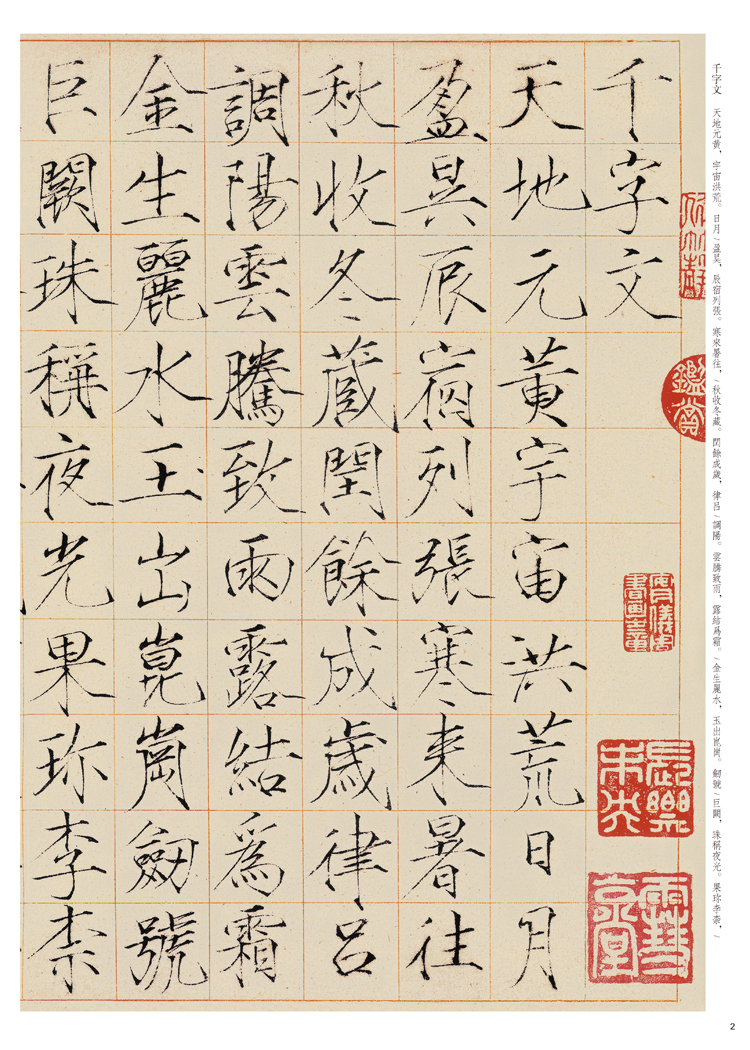 千字文
天地元黄宇宙洪荒日月
盈昃辰宿列張寒来暑往
秋收冬蔵閏餘成歲律吕
調陽雲騰致雨露結爲霜
金生麗水玉出崑崗劒號
巨闕珠稱夜光果珎李柰
鑑賞
長樂未央
千字文 天地元黃，宇宙洪荒。日月／盈昃，辰宿列張。寒來暑往，／秋收冬藏。閏餘成歲，律呂／調陽。雲騰致雨，露結爲霜。／金生麗水，玉出崑崗。劒號／巨闕，珠稱夜光。果珎李柰，／
2